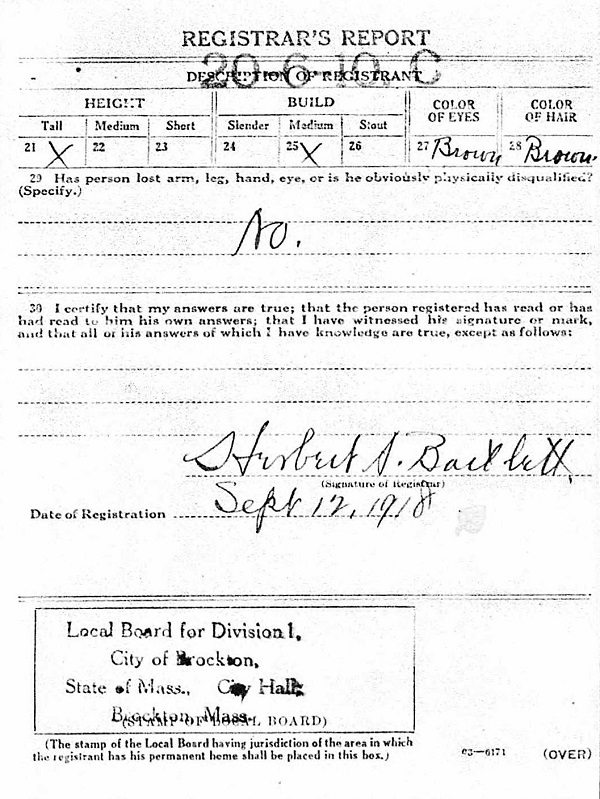 REGISTRAR'S REPORT
20-6-10-C
DESCRIPTION OF REGISTRANT
HEIGHT BUILD COLOR OF EYES COLOR OF HAIR
Tall Medium Short Slender Medium Stout
21 X 22 23 24 25 X 26 27 Brown 28 Brown.
29 Has person lost arm, leg, hand, eye, or is he obviously physically disqualified?
(Specify.)
No.
30 I certify that my answers are true; that the person registered has read or has
had read to him his own answers; that I have witnessed his signature or mark,
and that all of his answers of which I have knowledge are true, except as follows:
Herbert A. Bartlett
(Signature of Registrar)
Date of Registration Sept 12, 1918
Local Board for Division 1,
City of Brockton,
State of Mass., City Hall,
Brockton, Mass.
(STAMP OF LOCAL BOARD)
(The stamp of the Local Board having jurisdiction of the area in which
the registrant has his permanent home shall be placed in this box.)
03—6171 (OVER)